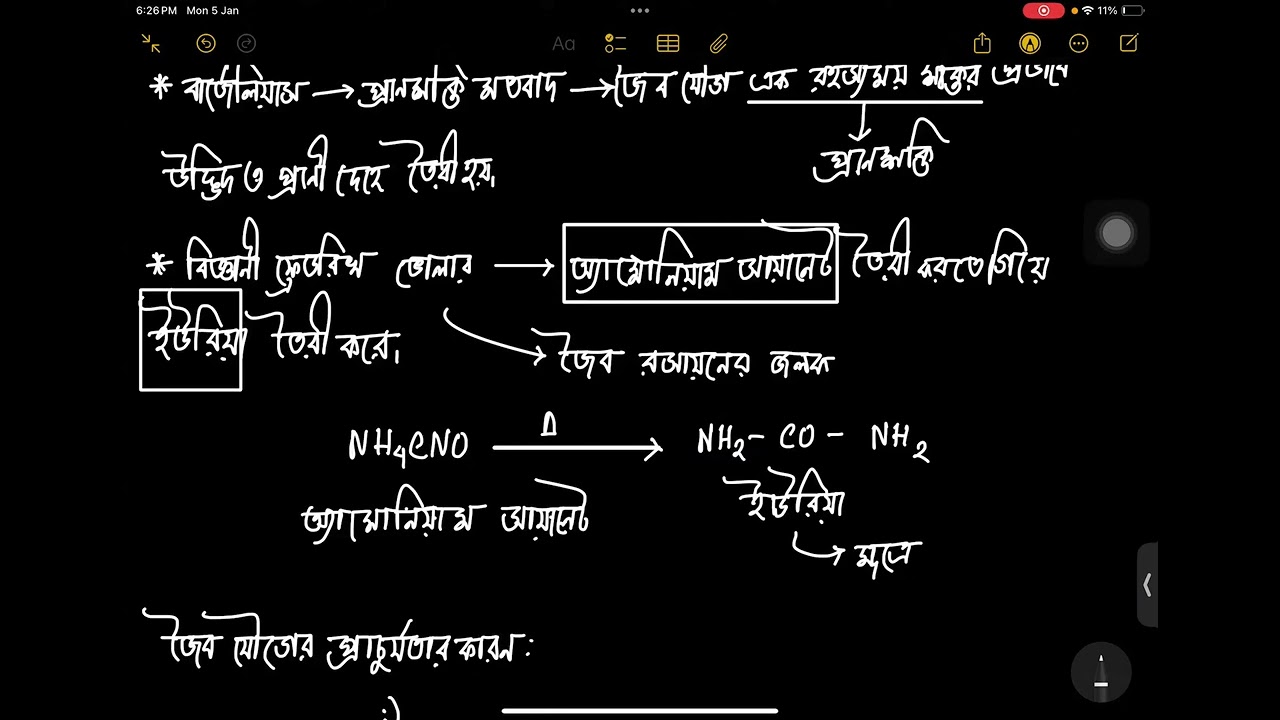 6:26 PM Mon 5 Jan
11%
Aa
* বার্জেলিয়াস → প্রানশক্তি মতবাদ → জৈব যৌগ এক রহস্যময় শক্তির প্রভাবে
প্রানশক্তি
উদ্ভিদ ও প্রানী দেহে তৈরী হয়।
* বিজ্ঞানী ফ্রেডরিখ ভোলার → অ্যামোনিয়াম সায়ানেট তৈরী করতে গিয়ে
ইউরিয়া তৈরী করে।
→ জৈব রসায়নের জনক
NH₄CNO —Δ→ NH₂ - CO - NH₂
অ্যামোনিয়াম সায়ানেট ইউরিয়া
→ মূত্রে
জৈব যৌগের প্রাচুর্যতার কারন :